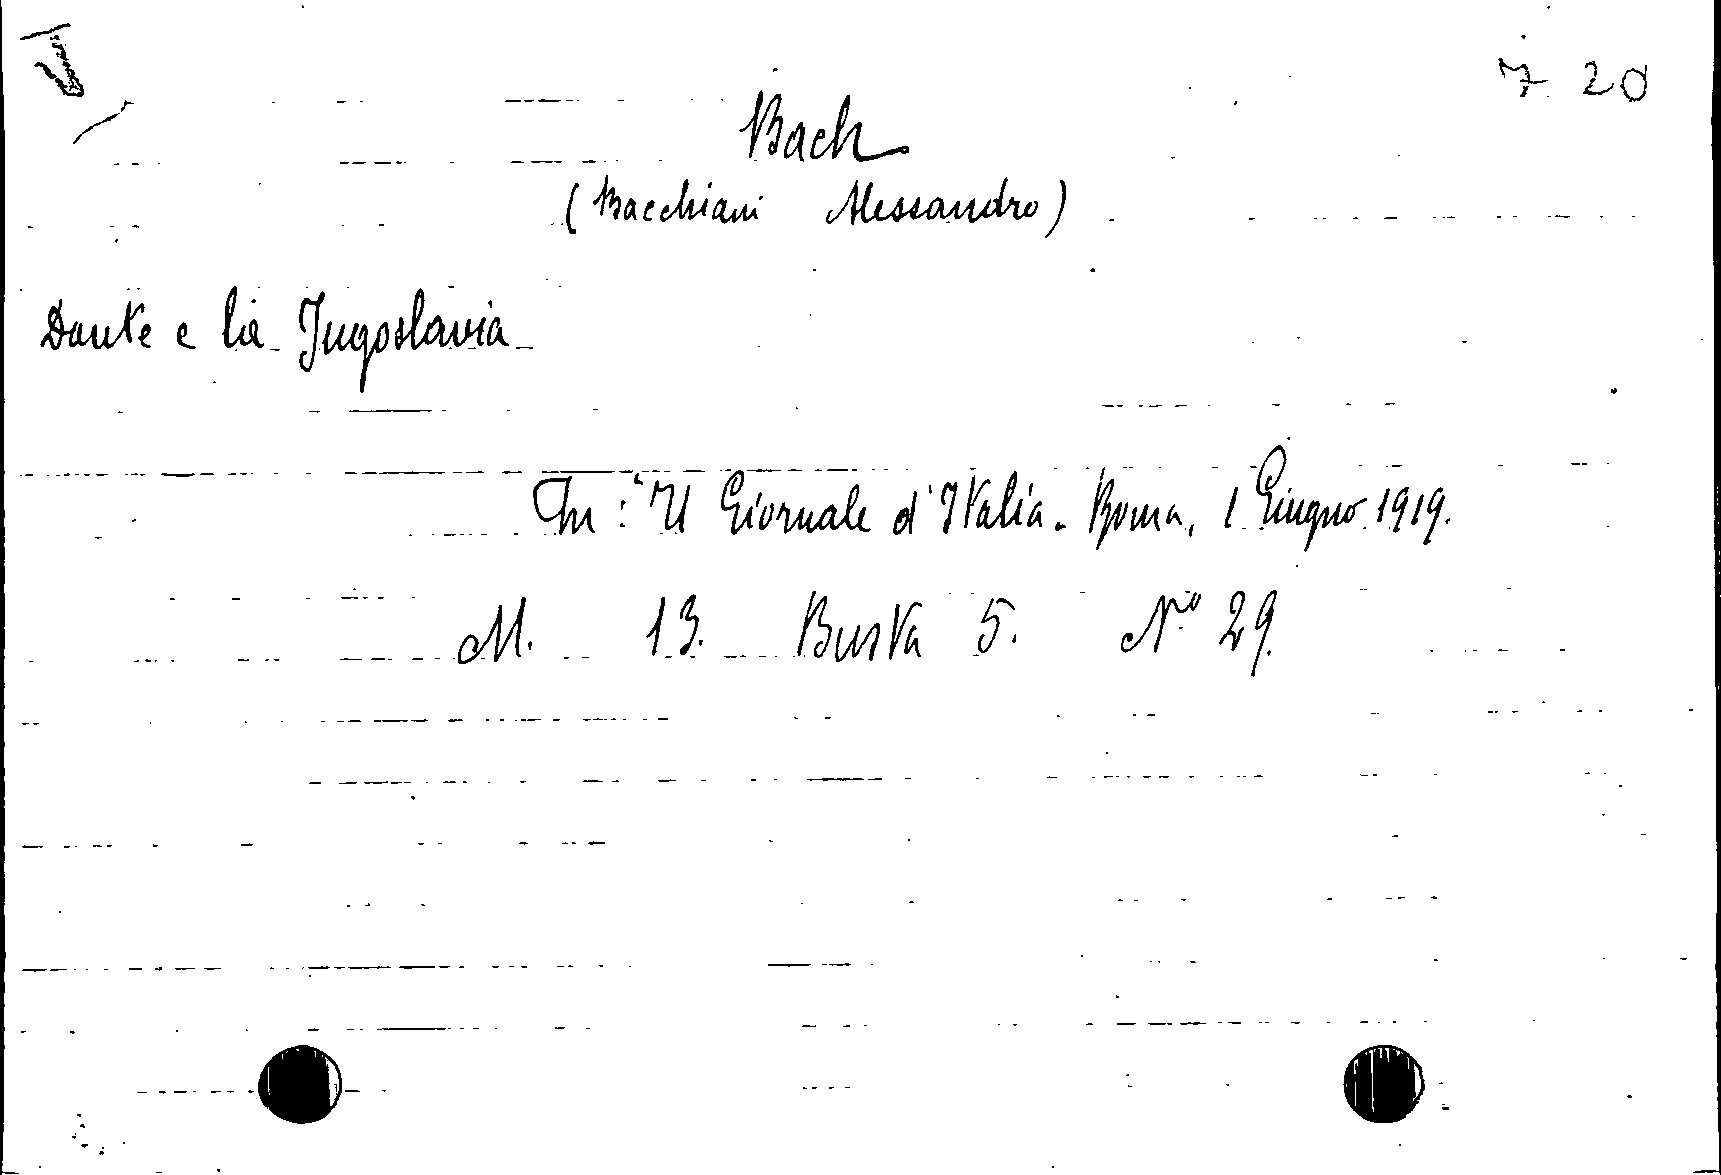 7 20
Bach
(Bacchiani Alessandro)
Dante e la Jugoslavia
In: "Il Giornale d'Italia. Roma, 1 Giugno 1919.
M. 13. Busta 5. Nº 29.